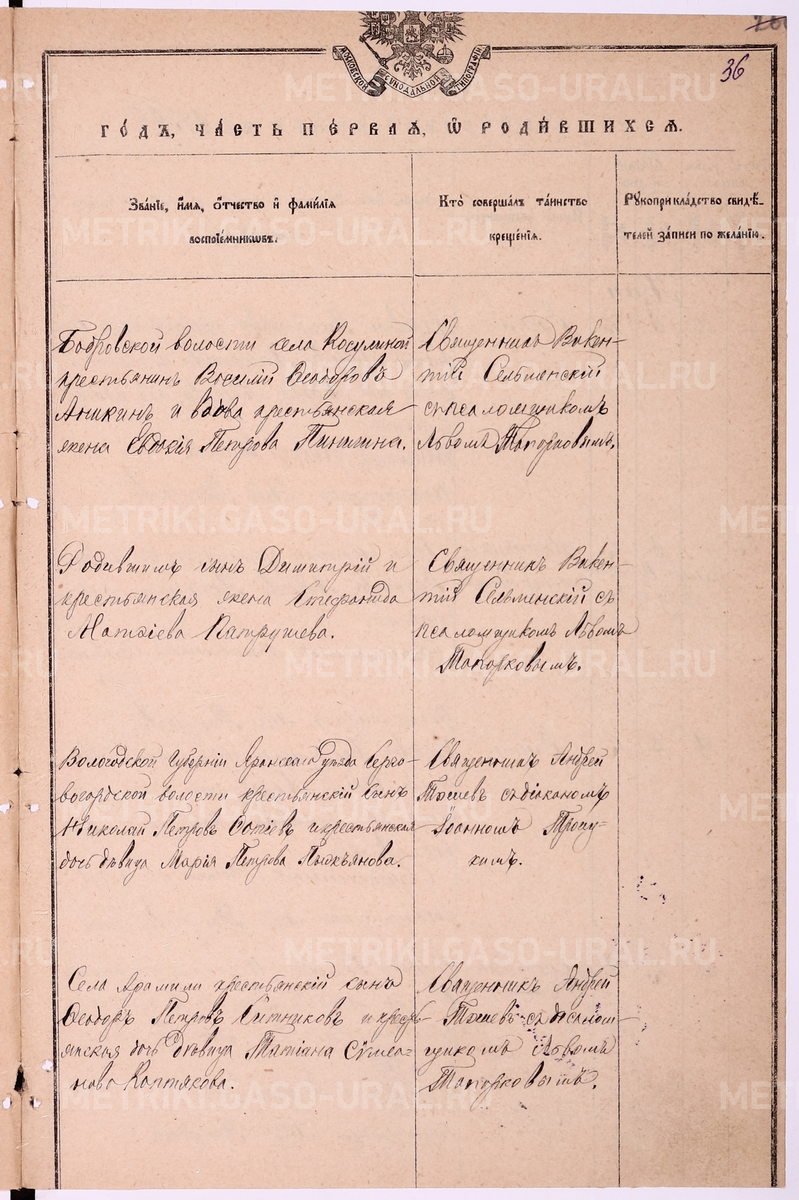 36
МОСКОВСКОЙ СѴНОДАЛЬНОЙ ТИПОГРАФІИ
ГОДЪ, ЧАСТЬ ПЕРВАЯ, Ѽ РОДИВШИХСЯ.
Званіе, имя, отчество и фамилія
воспріемниковъ.
Кто совершалъ таинство
крещенія.
Рукоприкладство свидѣ-
телей записи по желанію.
Бобровской волости села Косулиной
крестьянинъ Василій Ѳеодоровъ
Аникинъ и вдова крестьянская
жена Евдокія Петрова Пинигина.
Священникъ Викен-
тій Сельменскій
съ псаломщикомъ
Львомъ Топорковымъ.
Родившихъ сынъ Димитрій и
крестьянская жена Стефанида
Матѳіева Патрушева.
Священникъ Викен-
тій Сельменскій съ
псаломщикомъ Львомъ
Топорковымъ.
Вологодской Губерніи Яренскаго уѣзда
вогородской волости крестьянскій сынъ
Николай Петровъ и крестьянская
дочь дѣвица Марія Петрова
Священникъ Андрей
съ діакономъ
Іоанномъ
Села Арамили крестьянскій сынъ
Ѳеодоръ Петровъ Ситниковъ и кресть-
янская дочь дѣвица Татіана Симеа-
нова Коптякова.
Священникъ Андрей
съ псалом-
щикомъ Львомъ
Топорковымъ.
METRIKI.GASO-URAL.RU